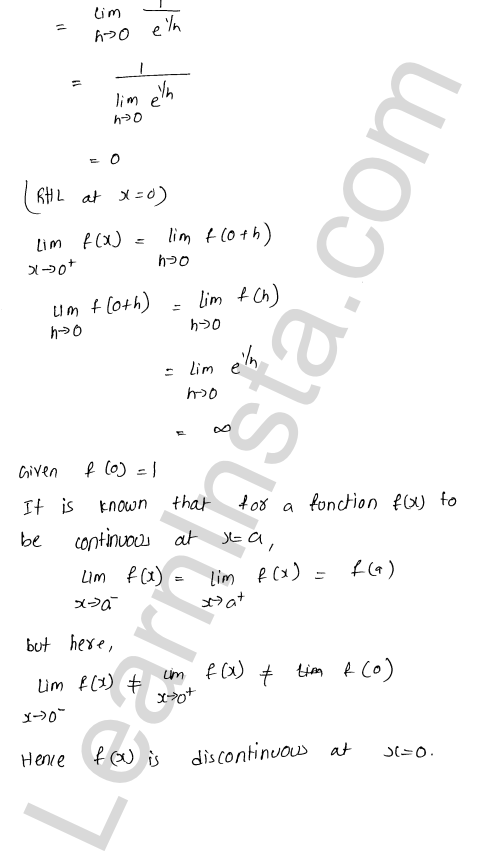 = lim h→0 1/e^(1/h)
= 1/(lim h→0 e^(1/h))
= 0
(RHL at x=0)
lim x→0⁺ f(x) = lim h→0 f(0+h)
lim h→0 f(0+h) = lim h→0 f(h)
= lim h→0 e^(1/h)
= ∞
Given f(0) = 1
It is known that for a function f(x) to
be continuous at x=a,
lim x→a⁻ f(x) = lim x→a⁺ f(x) = f(a)
but here,
lim x→0⁻ f(x) ≠ lim x→0⁺ f(x) ≠ f(0)
Hence f(x) is discontinuous at x=0.
LearnInsta.com